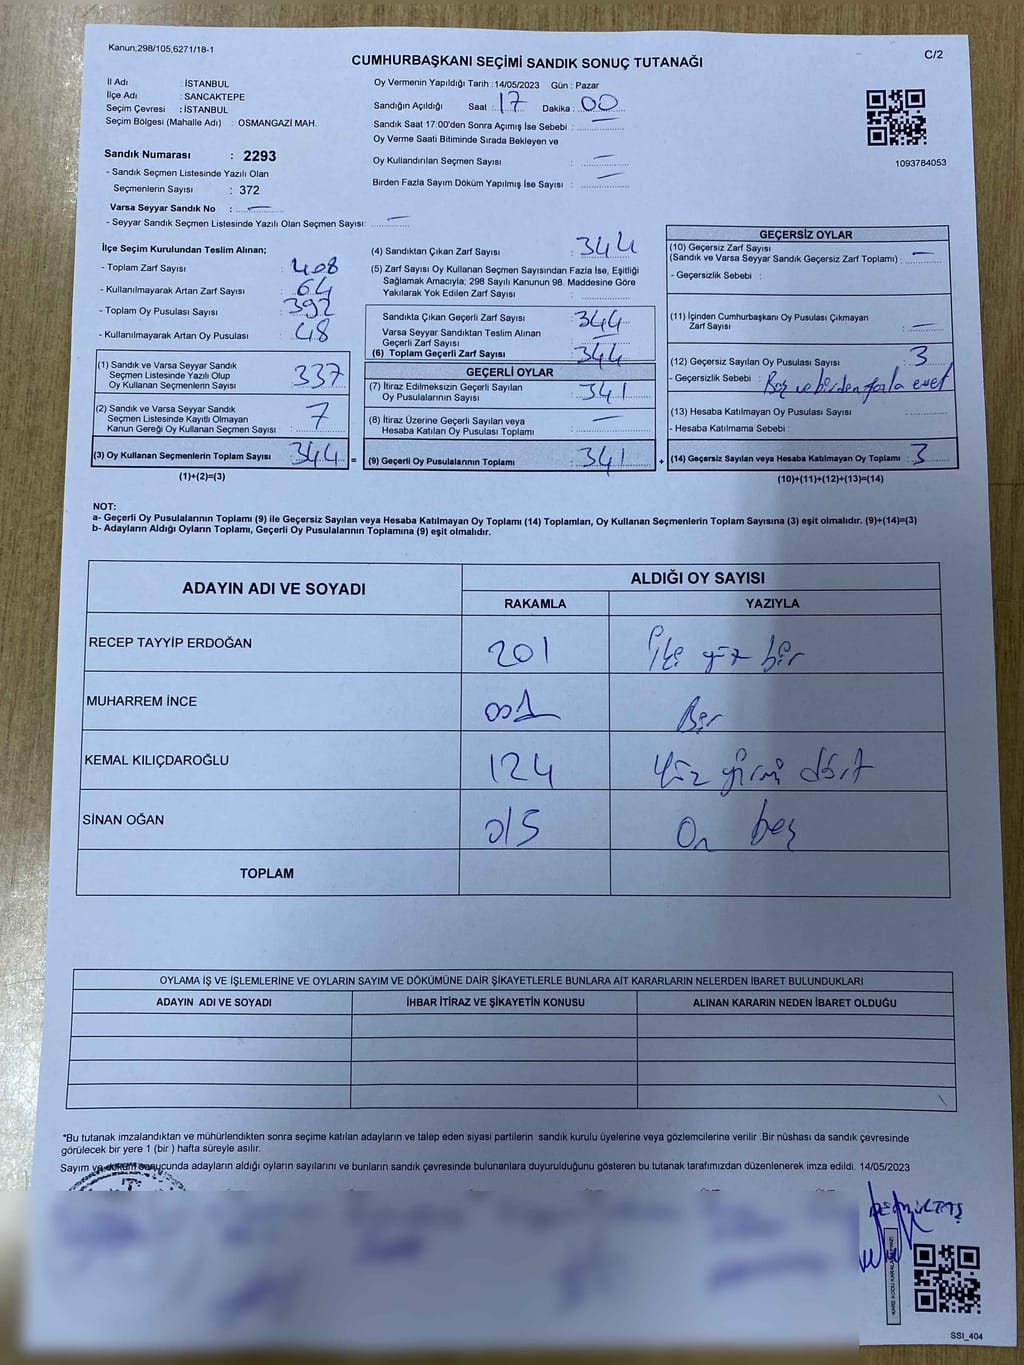 Kanun,298/105,6271/18-1
C/2
CUMHURBAŞKANI SEÇİMİ SANDIK SONUÇ TUTANAĞI
İl Adı : İSTANBUL
İlçe Adı : SANCAKTEPE
Seçim Çevresi : İSTANBUL
Seçim Bölgesi (Mahalle Adı) : OSMANGAZİ MAH.
Sandık Numarası : 2293
- Sandık Seçmen Listesinde Yazılı Olan
Seçmenlerin Sayısı : 372
Varsa Seyyar Sandık No : —
- Seyyar Sandık Seçmen Listesinde Yazılı Olan Seçmen Sayısı: —
Oy Vermenin Yapıldığı Tarih : 14/05/2023 Gün : Pazar
Sandığın Açıldığı Saat : 17 Dakika : 00
Sandık Saat 17:00'den Sonra Açımış İse Sebebi : —
Oy Verme Saati Bitiminde Sırada Bekleyen ve
Oy Kullandırılan Seçmen Sayısı : —
Birden Fazla Sayım Döküm Yapılmış İse Sayısı : —
1093784053
İlçe Seçim Kurulundan Teslim Alınan;
- Toplam Zarf Sayısı : 408
- Kullanılmayarak Artan Zarf Sayısı : 64
- Toplam Oy Pusulası Sayısı : 392
- Kullanılmayarak Artan Oy Pusulası : 48
(1) Sandık ve Varsa Seyyar Sandık
Seçmen Listesinde Yazılı Olup
Oy Kullanan Seçmenlerin Sayısı : 337
(2) Sandık ve Varsa Seyyar Sandık
Seçmen Listesinde Kayıtlı Olmayan
Kanun Gereği Oy Kullanan Seçmen Sayısı : 7
(3) Oy Kullanan Seçmenlerin Toplam Sayısı : 344 =
(1)+(2)=(3)
(4) Sandıktan Çıkan Zarf Sayısı : 344
(5) Zarf Sayısı Oy Kullanan Seçmen Sayısından Fazla İse, Eşitliği
Sağlamak Amacıyla; 298 Sayılı Kanunun 98. Maddesine Göre
Yakılarak Yok Edilen Zarf Sayısı :
Sandıkta Çıkan Geçerli Zarf Sayısı : 344
Varsa Seyyar Sandıktan Teslim Alınan
Geçerli Zarf Sayısı : —
(6) Toplam Geçerli Zarf Sayısı : 344
GEÇERLİ OYLAR
(7) İtiraz Edilmeksizin Geçerli Sayılan
Oy Pusulalarının Sayısı : 341
(8) İtiraz Üzerine Geçerli Sayılan veya
Hesaba Katılan Oy Pusulası Toplamı : —
(9) Geçerli Oy Pusulalarının Toplamı : 341 +
GEÇERSİZ OYLAR
(10) Geçersiz Zarf Sayısı
(Sandık ve Varsa Seyyar Sandık Geçersiz Zarf Toplamı) : —
- Geçersizlik Sebebi :
(11) İçinden Cumhurbaşkanı Oy Pusulası Çıkmayan
Zarf Sayısı : —
(12) Geçersiz Sayılan Oy Pusulası Sayısı : 3
- Geçersizlik Sebebi : Boş ve birden fazla evet
(13) Hesaba Katılmayan Oy Pusulası Sayısı :
- Hesaba Katılmama Sebebi :
(14) Geçersiz Sayılan veya Hesaba Katılmayan Oy Toplamı : 3
(10)+(11)+(12)+(13)=(14)
NOT:
a- Geçerli Oy Pusulalarının Toplamı (9) ile Geçersiz Sayılan veya Hesaba Katılmayan Oy Toplamı (14) Toplamları, Oy Kullanan Seçmenlerin Toplam Sayısına (3) eşit olmalıdır. (9)+(14)=(3)
b- Adayların Aldığı Oyların Toplamı, Geçerli Oy Pusulalarının Toplamına (9) eşit olmalıdır.
ADAYIN ADI VE SOYADI
ALDIĞI OY SAYISI
RAKAMLA YAZIYLA
RECEP TAYYİP ERDOĞAN 201 İki yüz bir
MUHARREM İNCE 001 Bir
KEMAL KILIÇDAROĞLU 124 Yüz yirmi dört
SİNAN OĞAN 015 On beş
TOPLAM
OYLAMA İŞ VE İŞLEMLERİNE VE OYLARIN SAYIM VE DÖKÜMÜNE DAİR ŞİKAYETLERLE BUNLARA AİT KARARLARIN NELERDEN İBARET BULUNDUKLARI
ADAYIN ADI VE SOYADI İHBAR İTİRAZ VE ŞİKAYETİN KONUSU ALINAN KARARIN NEDEN İBARET OLDUĞU
*Bu tutanak imzalandıktan ve mühürlendikten sonra seçime katılan adayların ve talep eden siyasi partilerin sandık kurulu üyelerine veya gözlemcilerine verilir .Bir nüshası da sandık çevresinde
görülecek bir yere 1 (bir ) hafta süreyle asılır.
Sayım ve döküm sonucunda adayların aldığı oyların sayılarını ve bunların sandık çevresinde bulunanlara duyurulduğunu gösteren bu tutanak tarafımızdan düzenlenerek imza edildi. 14/05/2023
SSI_404